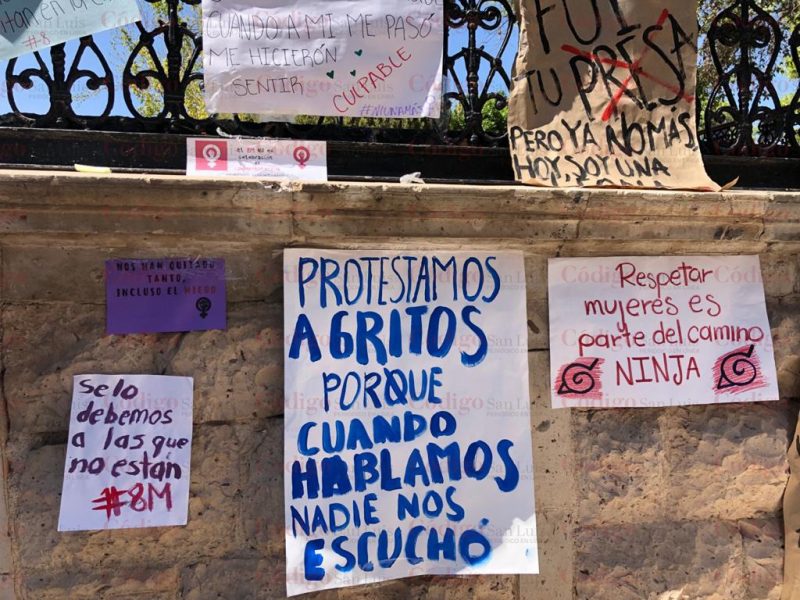 #8
CUANDO A MI ME PASÓ
ME HICIERÓN
SENTIR
CULPABLE
#NIUNAMÁS
FUI
TU PRESA
PERO YA NO MAS,
HOY, SOY UNA
NOS HAN QUITADO
TANTO,
INCLUSO EL MIEDO
PROTESTAMOS
A GRITOS
PORQUE
CUANDO
HABLAMOS
NADIE NOS
ESCUCHÓ
Respetar
mujeres es
parte del camino
NINJA
Se lo
debemos
a las que
no están
#8M
Código San Luis